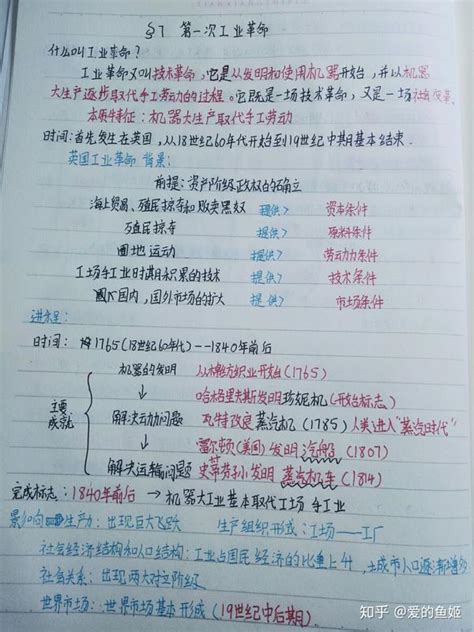 §7 第一次工业革命
什么叫工业革命?
工业革命又叫技术革命,它是从发明和使用机器开始,并以机器
大生产逐步取代手工劳动的过程。它既是一场技术革命,又是一场社会变革。
本质特征:机器大生产取代手工劳动
时间:首先发生在英国,从18世纪60年代开始到19世纪中期基本结束.
英国工业革命 背景:
前提:资产阶级政权的确立
海上贸易、殖民掠夺和贩卖黑奴 提供> 资本条件
殖民掠夺 提供> 原料条件
圈地运动 提供> 劳动力条件
工场手工业时期积累的技术 提供> 技术条件
国内,国外市场的扩大 提供> 市场条件
进程:
时间: 1765(18世纪60年代)--1840年前后
机器的发明 从棉纺织业开始(1765)
哈格里夫斯发明珍妮机(开始标志)
主要成就 解决动力问题 瓦特改良蒸汽机(1785)人类进入"蒸汽时代"
富尔顿(美国)发明汽船(1807)
解决运输问题 史蒂芬孙发明蒸汽机车(1814)
完成标志:1840年前后 → 机器大工业基本取代工场手工业
影响 生产力:出现巨大飞跃 生产组织形式:工场——工厂
社会经济结构和人口结构:工业占国民经济的比重上升,城市人口逐渐增多
社会关系:出现两大对立阶级
世界市场:世界市场基本形成(19世纪中后期).
知乎 @爱的鱼姬